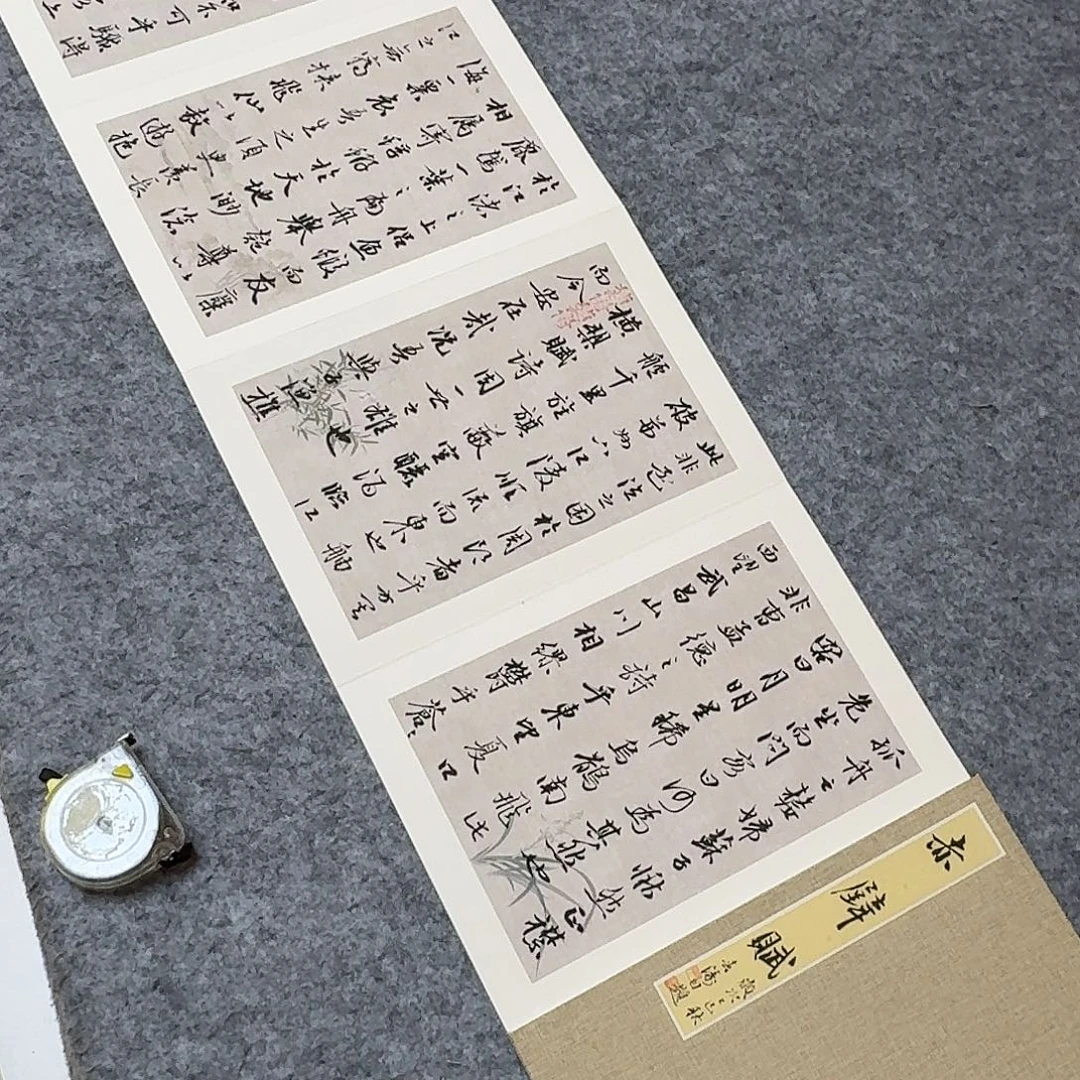 赤壁賦
孤舟之嫠婦蘇子愀然正襟
危坐而問客曰何為其然也
客曰月明星稀烏鵲南飛此
非曹孟德之詩乎東望夏口
西望武昌山川相繆鬱乎蒼蒼
此非孟德之困於周郎者乎方其
破荊州下江陵順流而東也舳
艫千里旌旗蔽空釃酒臨江
橫槊賦詩固一世之雄也
而今安在哉況吾與子漁樵
於江渚之上侶魚蝦而友麋
鹿駕一葉之扁舟舉匏尊以
相屬寄蜉蝣於天地渺滄
海一粟哀吾生之須臾羨長
江之無窮挾飛仙以遨遊抱
不可乎驟得